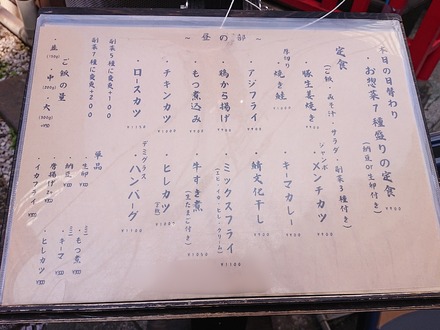 ～ 昼の部 ～
本日の日替わり
・お惣菜7種盛りの定食
(納豆or生卵付き) ¥900
定食
(ご飯・みそ汁・サラダ・副菜3種付き)
・豚生姜焼き
厚切り
・焼き鮭
・アジフライ
・鶏から揚げ
・もつ煮込み
・チキンカツ
・ロースカツ
ジャンボ
・メンチカツ
・キーマカレー
・鯖文化干し
・ミックスフライ
¥1100
・牛すき煮
(生たまご付き)
¥1050
・ヒレカツ
デミグラス
・ハンバーグ
¥1100
副菜5種に変更+100
副菜7種に変更+200
ご飯の量
・並
・中
・大
単品
・生卵
・納豆
・唐揚げ
・イカフライ
・もつ煮
・キーマ
・ヒレカツ